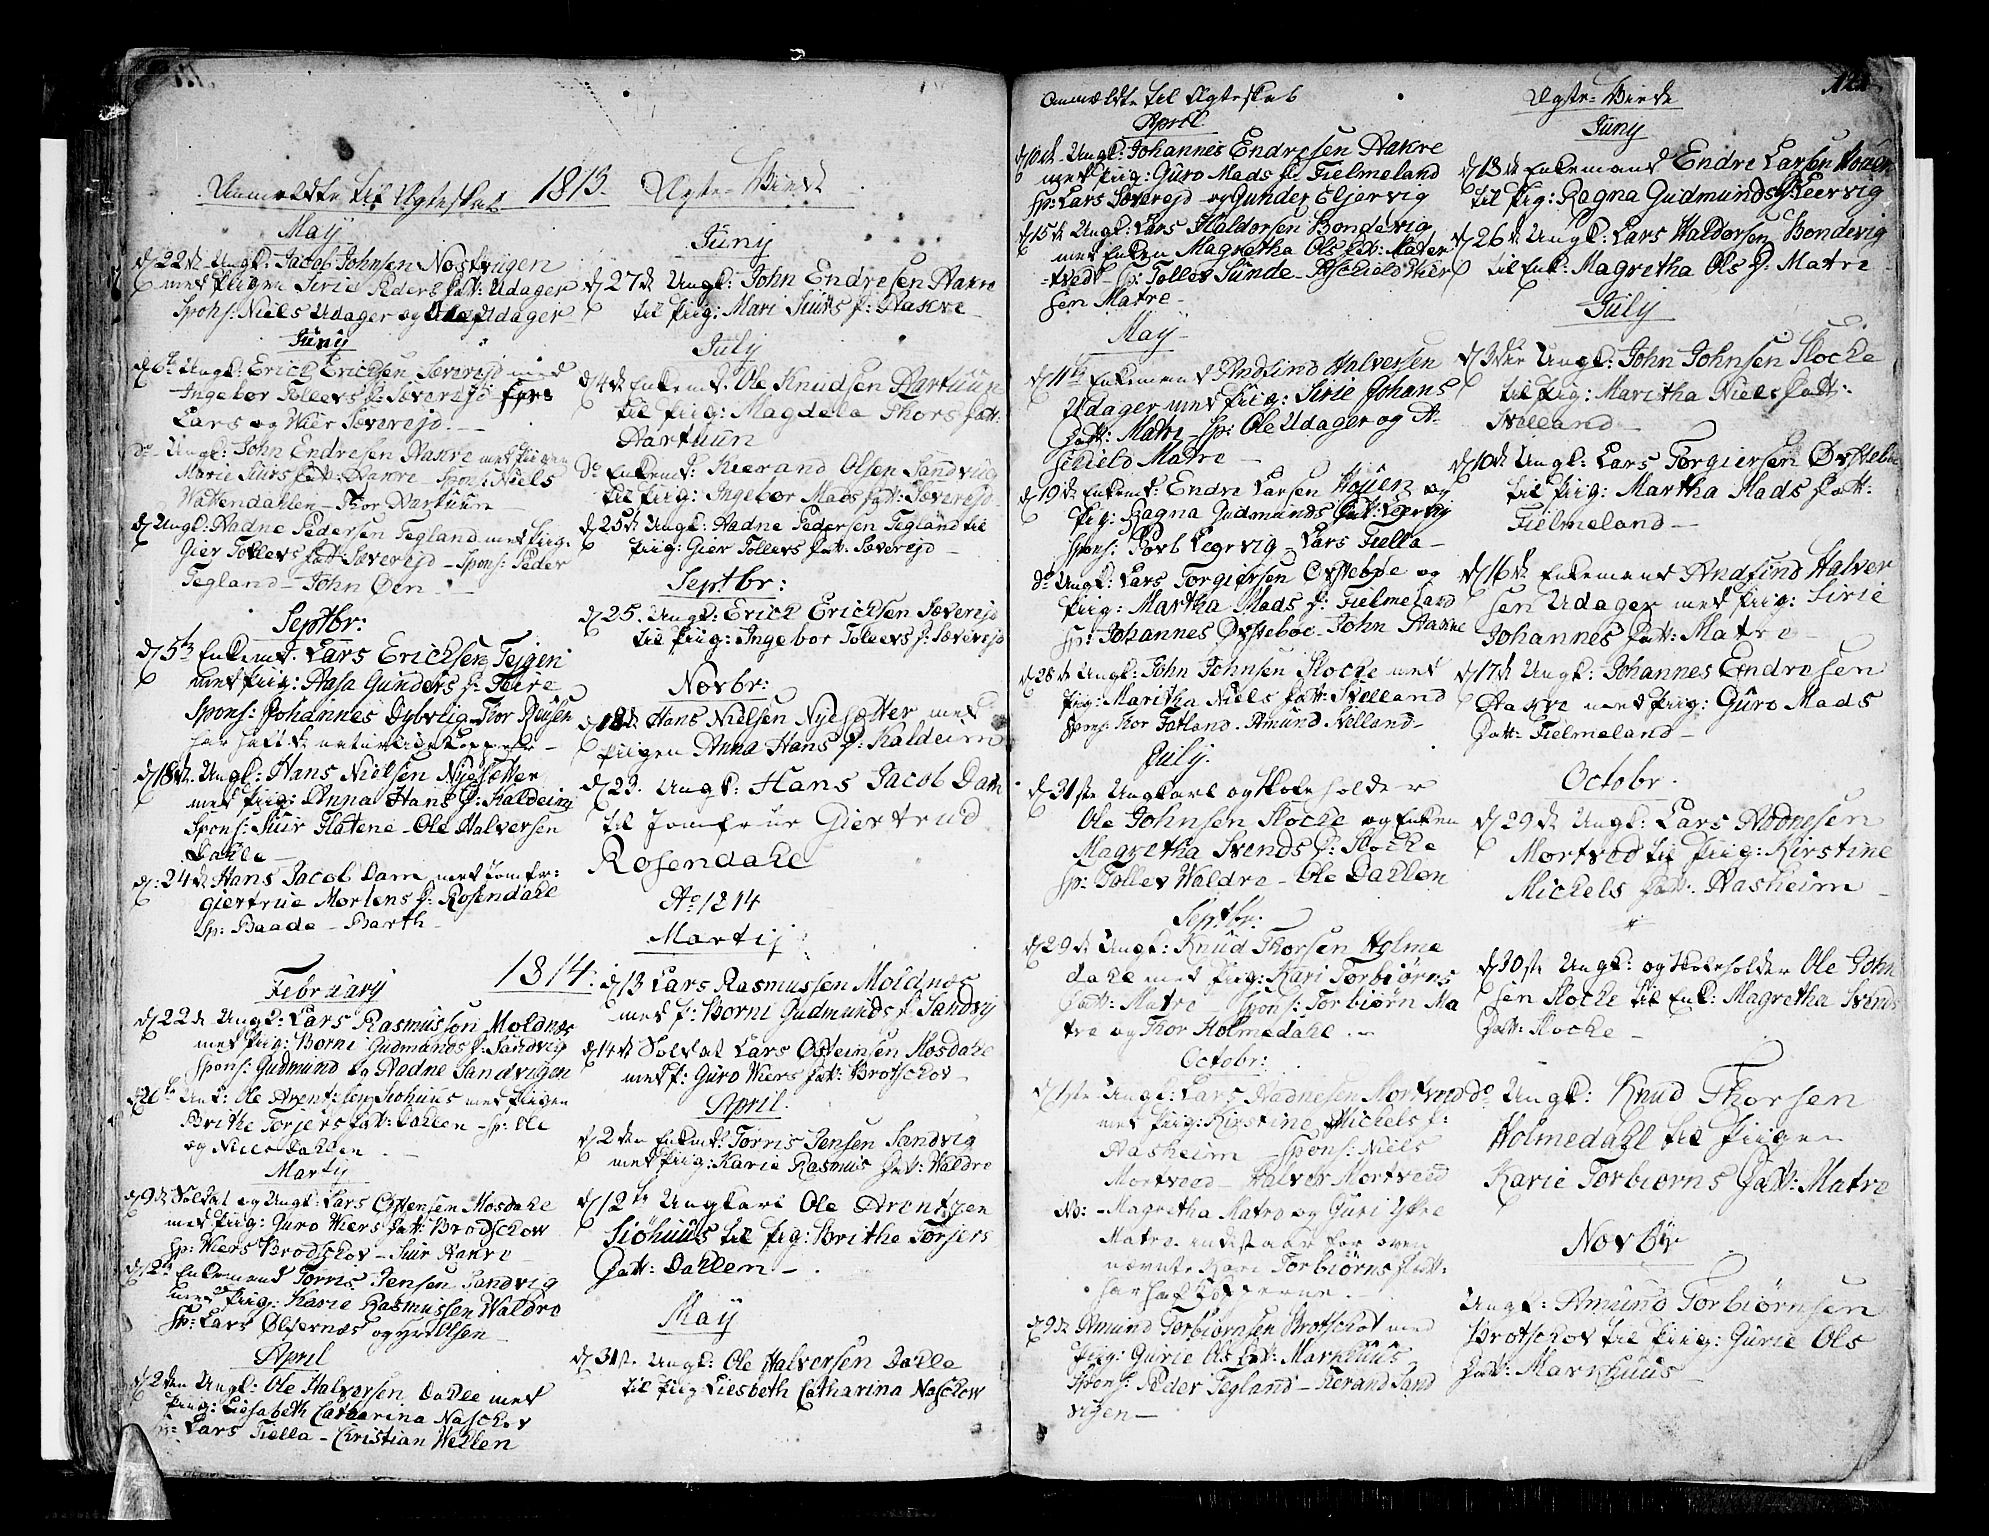 Anmeldte til Ægteskab 1813.
May
d 22de Ungk: Jacob Johnsen Nostvigen
med Pigen Sirie Peders Datt: Udager
Spons: Niels Udager og Udager
Juny
d 6te Ungk: Erick Ericksen Sæverejd med
Ingebor Tollevs D: Sæverejd
Lars og Wier Sæverejd.
do Ungk: John Endresen Aakre med Pigen
Marie Siurs Datt: Aakre Spons: Niels
Wattendallen Thor Aartuun
d Ungk: Aadne Pedersen Tegland med Piig.
Gier Tollevs Datt: Sæverejd Spons: Peder
Tegland John Øen
Septbr:
d 5te Enkemd. Lars Ericksen Tejgen
med Piig: Aasa Gunders D: Teire
Spons: Johannes Dybvlig Thor
har haft de naturlide Kopper
d 18de Ungk: Hans Nielsen Nyesætter
med Piig: Anna Hans D: Kaldeim
Spons: Siur Flatene Ole Halversen
Dahle
d: 24de Hans Jacob Dam med Jomfr:
Giertrue Mortens D: Rosendahl
Sp: Baade Barth
1814.
February
d 22de Ungk: Lars Rasmussøn Moldnæs
med Piig: Borni Gudmunds D: Sandvig
Spons: Gudmund og Aadne Sandvigen
d 26te Unk: Ole Arentsen Siohuus med Pigen
Brithe Torjers Datt: Dahlen Sp: Ole
og Niels Dahlen
Martij
d 9de Soldat og Ungk: Lars Østensen Mosdahl
med Piig: Guro Wiers Datt: Brodschow
Sp: Wiers Brodschov Siur Aakre
d 12te Enkemand Torris Jensen Sandvig
med Piig: Karie Rasmussen Waldre
Sp: Lars Ølfernæs og Olsen
April
d 2den Ungk: Ole Halversen Dahle med
Piig: Liesabeth Catharina Naschov
Sp: Lars Fiella Christian Wellen
Ægte-Viede
Juny
d 27de Ungk: John Endresen Aakre
til Piig: Mari Siurs D: Aakre
July
d 4de Enkemd. Ole Knudsen Aartuun
til Piig: Magdela Thors Datt:
Aartuun
do Enkemd: Kierand Olsen Sandvig
til Piig: Ingebor Mads Datt: Sæverejd
d 25de Ungk: Aadne Pedersen Tegland til
Piig: Gier Tollevs Datt: Sæverejd
Septbr:
d 25. Ungk: Erick Ericksen Sæverejd
til Piig: Ingebor Tollevs D: Sæverejd
Novbr:
d 18de Hans Nielsen Nyesætter med
Piigen Anna Hans D: Kaldeim
d 23. Ungk: Hans Jacob Dam
til Jomfrue Giertrud
Rosendahl
Ao 1814
Martij
d 13 Lars Rasmussen Moldnæs
med P: Borni Gudmunds D: Sandvig
d 14de Soldat Lars Østeinsen Mosdahl
med P: Guro Wiers Datt: Brotschov
April.
d 2den Enkemd: Torris Jensen Sandvig
med Piig: Karie Rasmus Datt: Waldre
d 12te Ungkarl Ole Arentzen
Siöhuus til Pig: Brithe Torjers
Datt: Dahlen
May
d 31te Ungk: Ole Halversen Dahle
til Piig: Liesbeth Catharina Naschow
Anmeldte til Ægteskab
April
d 10de Ungk: Johannes Endresen Aakre
med Piig: Guro Mads D: Fielmeland
Sp: Lars Sæverejd og Gunder Eljervig
d 15de Ungk: Lars Haldorsen Bondevig
med Enken Magretha Ols Datt: Mater
tvedt Sp: Tollev Sunde Aschield Wier
sen Matre
May
d 11te Enkemand Andfind Halversen
Udager med Piig: Sirie Johans
Datt: Matre Sp: Ole Udager og A-
schield Matre
d 19de Enkemd: Endre Larsen Höuen og
Piig: Ragna Gudmunds Datt: Leervig
Spons: Povl Leervig Lars Fiella
do Ungk: Lars Torgiersen Øvsteböe og
Piig: Martha Mads D: Fielmeland
Sp: Johannes Øvsteböe John Aakre
d 28de Ungk: John Johnsen Stocke med
Piig: Maritha Niels Datt: Svelland
Spons: Thor Fatland. Amund Svelland
July.
d 31te Ungkarl og Skoleholder
Ole Johnsen Stocke og Enken
Magretha Svends D: Stocke
Sp: Tollev Waldre Ole Dahlen
Septbr:
d 29de Ungk: Knud Thorsen Holme
dahl med Piig: Kari Torbiørns
Datt: Matre Spons: Torbiørn Ma
tre og Thor Holmedahl.
Octobr:
d 1te Ungk: Lars Aadnesen Mortved
med Piig: Kirstine Mickels D:
Aasheim Spons: Niels
Mortveed Halver Mortveed
NB: Magretha Matre og Guri Ystre
Matre indestaar for oven
nævnte Kari Torbiørns Datt:
har haft Kopperne.
d 9de Amund Torbiørnsen Brotschov med
Piig: Gurie Ols Datt: Markhuus
Spons: Peder Tegland Kierand Sand
vigen
Ægte-Viede
Juny
d 13de Enkemand Endre Larsen Höuen
til Piig: Ragna Gudmunds D: Leervig
d 26de Ungk: Lars Haldorsen Bondevig
til Enk: Magretha Ols D: Matre
July
d 3die Ungk: John Johnsen Stocke
til Pig: Maritha Niels Datt:
Svelland
d 10de Ungk: Lars Torgiersen Øvsteböe
til Piig: Martha Mads Datt:
Fielmeland
d 16de Enkemand Andfind Halver
sen Udager med Piig: Sirie
Johannes Datt: Matre
d 17de Ungk: Johannes Endresen
Aakre med Piig: Guro Mads
Datt: Fielmeland
Octobr.
d 29de Ungk: Lars Aadnesen
Mortved til Piig: Kirstine
Mickels Datt: Aasheim
d 30te Ungk: og Skoleholder Ole John
sen Stocke til Enk: Magretha Svends
Datt: Stocke
do Ungk: Knud Thorsen
Holmedahl til Piigen
Karie Torbiørns Datt: Matre
Novbr
Ungk: Amund Torbiørnsen
Brotschov til Piig: Gurie Ols
Datt: Markhuus